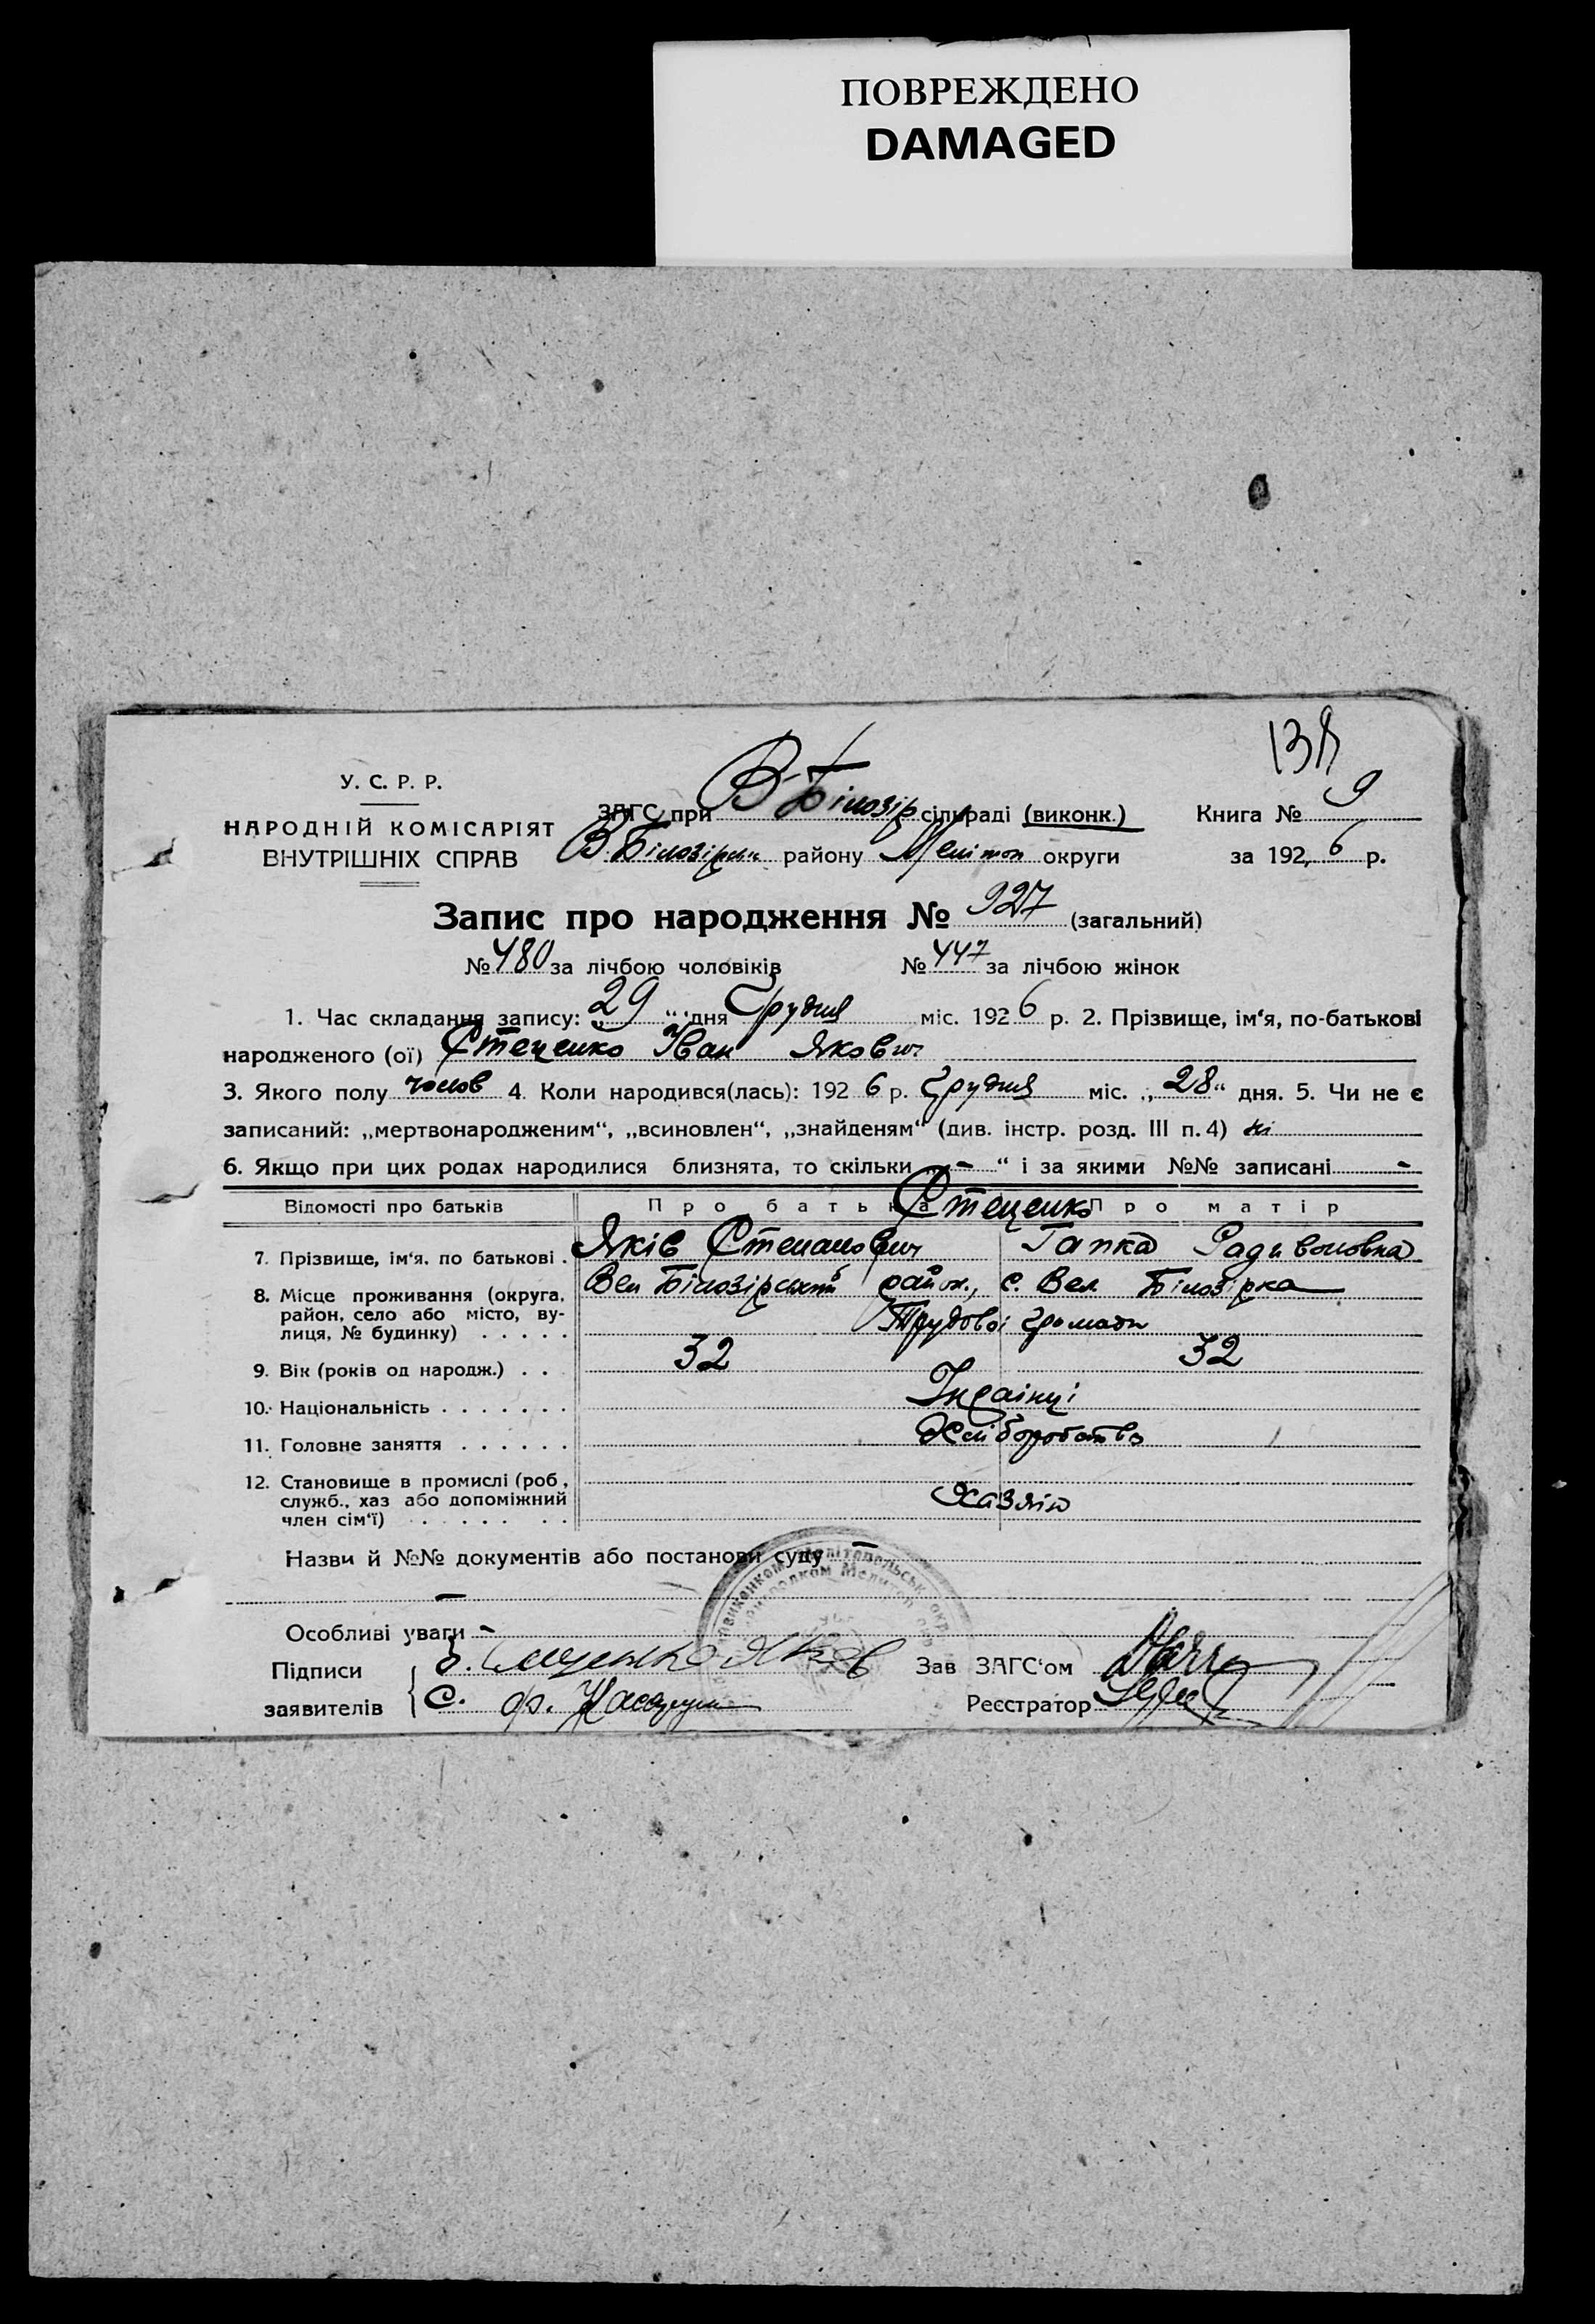 ПОВРЕЖДЕНО
DAMAGED
У. С. Р. Р.
НАРОДНІЙ КОМІСАРІЯТ
ВНУТРІШНІХ СПРАВ
ЗАГС при В-Білозір сільраді (виконк.)
В. Білозірськ району Мелітоп округи
Книга № 9
за 192 6 р.
Запис про народження № 927 (загальний)
№ 480 за лічбою чоловіків № 447 за лічбою жінок
1. Час складання запису: „ 29 “ дня Грудня міс. 192 6 р. 2. Прізвище, ім‘я, по-батькові
народженого (ої) Стеценко Іван Якович
3. Якого полу чолов 4. Коли народився(лась): 192 6 р. Грудня міс. „ 28 “ дня. 5. Чи не є
записаний: „мертвонародженим“, „всиновлен“, „знайденям“ (див. інстр. розд. III п. 4) ні
6. Якщо при цих родах народилися близнята, то скільки „ - “ і за якими №№ записані -
Відомості про батьків Про батька Про матір
Стеценко
7. Прізвище, ім‘я, по батькові . Яків Степанович Гапка Радивоновна
8. Місце проживання (округа, район, село або місто, вулиця, № будинку) . . . . .
Вел Білозірський район, с. Вел Білозірка
Трудової громади
9. Вік (років од народж.) . . 32 32
10. Національність . . . . . . . Українці
11. Головне заняття . . . . . . Хліборобство
12. Становище в промислі (роб, служб., хаз або допоміжний член сім‘ї) . . . . . . . Хазяїн
Назви й №№ документів або постанови суду -
-
Особливі уваги -
Підписи
заявителів
Зав ЗАГС‘ом
Реєстратор